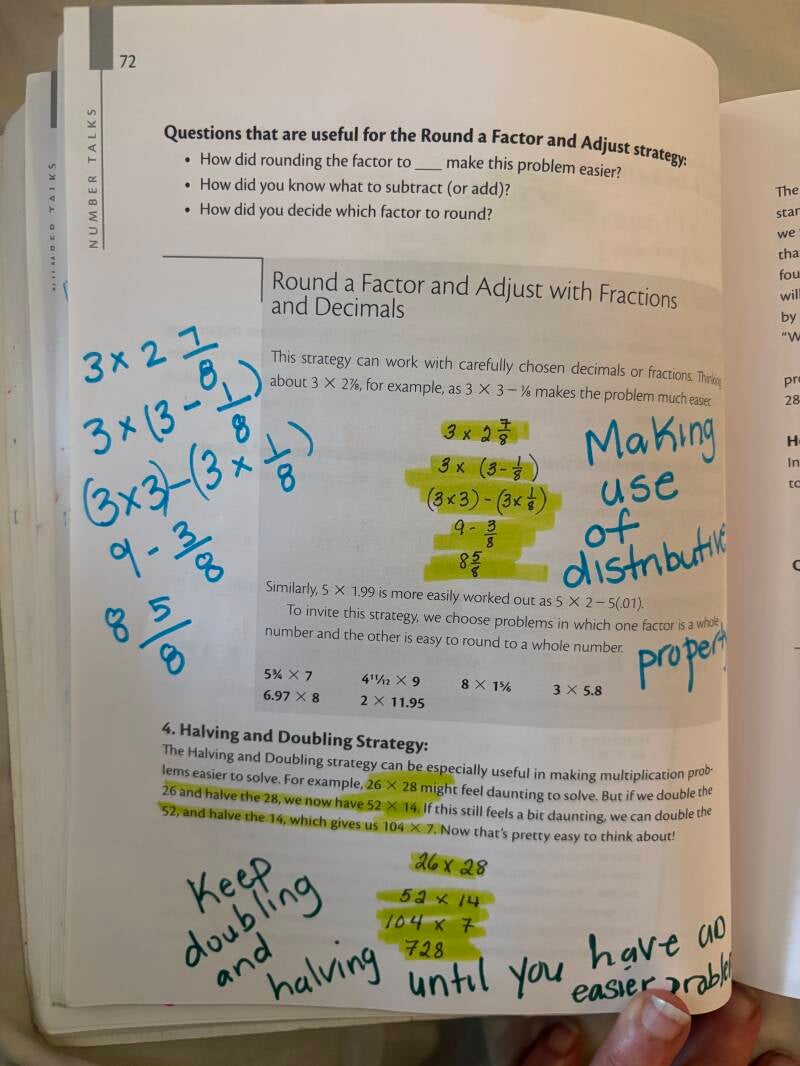 72
NUMBER TALKS
NUMBER TALKS
Questions that are useful for the Round a Factor and Adjust strategy:
• How did rounding the factor to ___ make this problem easier?
• How did you know what to subtract (or add)?
• How did you decide which factor to round?
Round a Factor and Adjust with Fractions
and Decimals
This strategy can work with carefully chosen decimals or fractions. Thinking
about 3 × 2⅞, for example, as 3 × 3 – ⅛ makes the problem much easier.
3 × 2 7/8
3 × (3 - 1/8)
(3×3) - (3 × 1/8)
9 - 3/8
8 5/8
3 × 2 7/8
3 × (3 - 1/8)
(3×3) - (3× 1/8)
9 - 3/8
8 5/8
Making
use
of
distributive
property
Similarly, 5 × 1.99 is more easily worked out as 5 × 2 – 5(.01).
To invite this strategy, we choose problems in which one factor is a whole
number and the other is easy to round to a whole number.
5¾ × 7 4¹¹/₁₂ × 9 8 × 1⅚ 3 × 5.8
6.97 × 8 2 × 11.95
4. Halving and Doubling Strategy:
The Halving and Doubling strategy can be especially useful in making multiplication prob-
lems easier to solve. For example, 26 × 28 might feel daunting to solve. But if we double the
26 and halve the 28, we now have 52 × 14. If this still feels a bit daunting, we can double the
52, and halve the 14, which gives us 104 × 7. Now that's pretty easy to think about!
26 × 28
52 × 14
104 × 7
728
Keep
doubling
and
halving until you have an
easier problem
The
we
by
"W
28
In
to